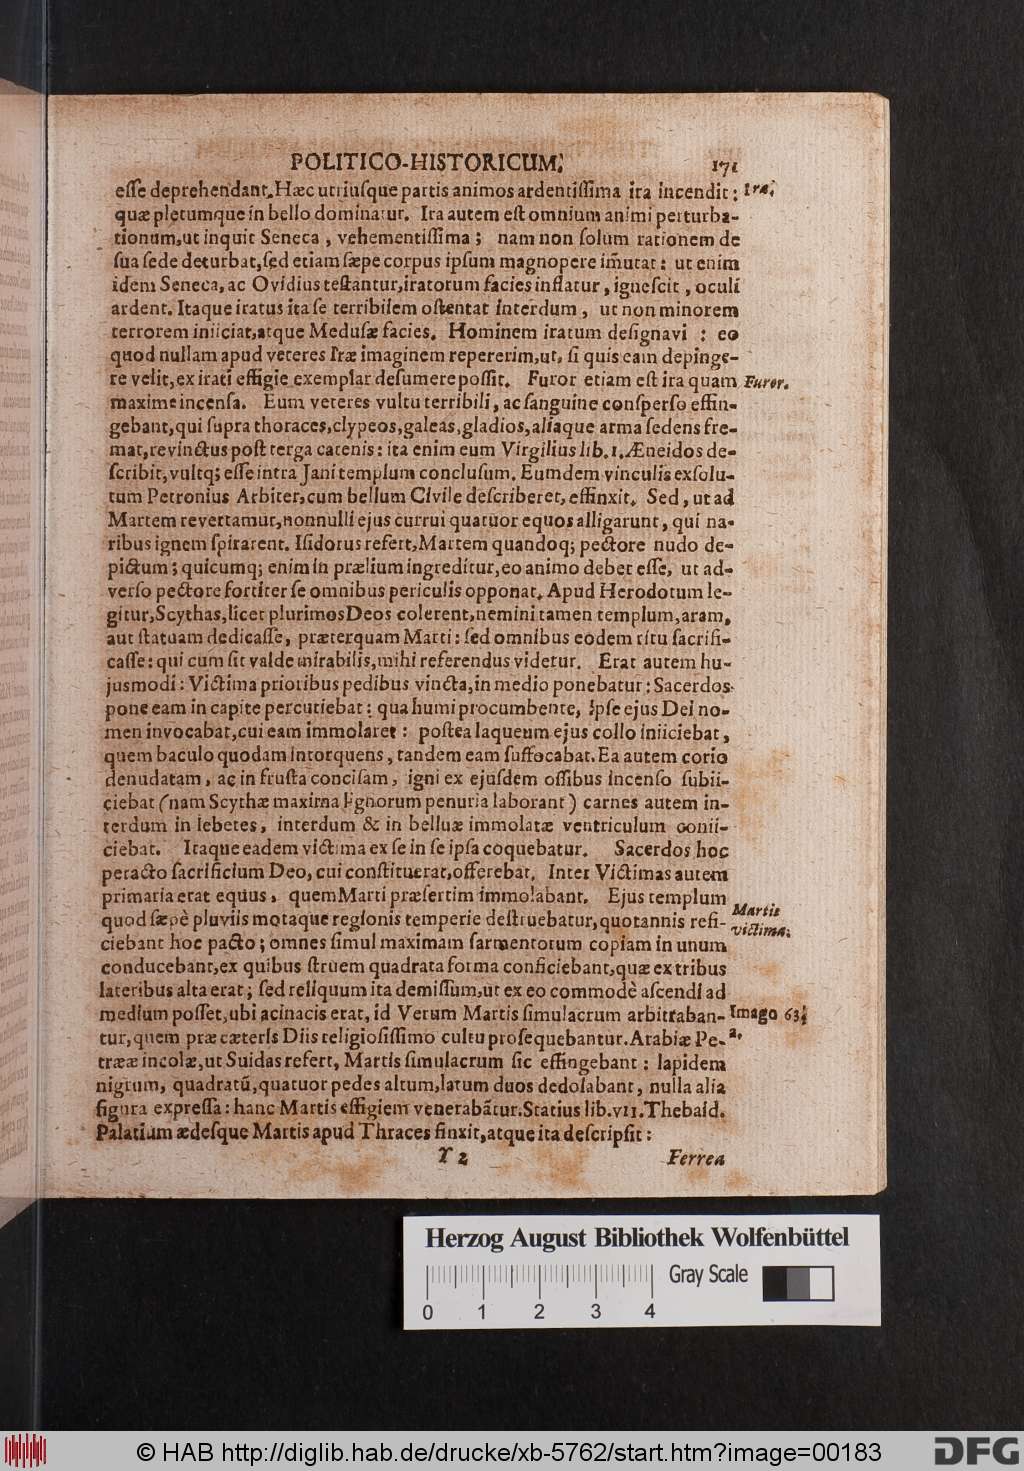 POLITICO-HISTORICUM. 171
esse deprehendant. Hæc utriusque partis animos ardentissima ira incendit: Ira.
quæ plerumque in bello dominatur. Ira autem est omnium animi perturba-
tionum, ut inquit Seneca, vehementissima; nam non solum rationem de
sua sede deturbat, sed etiam sæpe corpus ipsum magnopere im̃utat: ut enim
idem Seneca, ac Ovidius testantur, iratorum facies inflatur, ignescit, oculi
ardent. Itaque iratus ita se terribilem ostentat interdum, ut non minorem
terrorem iniiciat, atque Medusæ facies. Hominem iratum designavi: eo
quod nullam apud veteres Iræ imaginem repererim, ut, si quis eam depinge-
re velit, ex irati effigie exemplar desumere possit. Furor etiam est ira quam Furor.
maxime incensa. Eum veteres vultu terribili, ac sanguine consperso effin-
gebant, qui supra thoraces, clypeos, galeas, gladios, aliaque arma sedens fre-
mat, revinctus post terga catenis: ita enim eum Virgilius lib. 1. Æneidos de-
scribit, vultq; esse intra Jani templum conclusum. Eumdem vinculis exsolu-
tum Petronius Arbiter, cum bellum Civile describeret, effinxit. Sed, ut ad
Martem revertamur, nonnulli ejus currui quatuor equos alligarunt, qui na-
ribus ignem spirarent. Isidorus refert, Martem quandoq; pectore nudo de-
pictum; quicumq; enim in prælium ingreditur, eo animo debet esse, ut ad-
verso pectore fortiter se omnibus periculis opponat. Apud Herodotum le-
gitur, Scythas, licet plurimos Deos colerent, nemini tamen templum, aram,
aut statuam dedicasse, præterquam Marti: sed omnibus eodem ritu sacrifi-
casse: qui cum sit valde mirabilis, mihi referendus videtur. Erat autem hu-
jusmodi: Victima prioribus pedibus vincta, in medio ponebatur: Sacerdos
pone eam in capite percutiebat: qua humi procumbente, ipse ejus Dei no-
men invocabat, cui eam immolaret: postea laqueum ejus collo iniiciebat,
quem baculo quodam intorquens, tandem eam suffocabat. Ea autem corio
denudatam, ac in frusta concisam, igni ex ejusdem ossibus incenso subii-
ciebat (nam Scythæ maxima lignorum penuria laborant) carnes autem in-
terdum in lebetes, interdum & in belluæ immolatæ ventriculum conii-
ciebat. Itaque eadem victima ex se in se ipsa coquebatur. Sacerdos hoc
peracto sacrificium Deo, cui constituerat, offerebat. Inter Victimas autem
primaria erat equus, quem Marti præsertim immolabant. Ejus templum
quod sæpè pluviis motaque regionis temperie destruebatur, quotannis refi- Martis
ciebant hoc pacto; omnes simul maximam sarmentorum copiam in unum victima.
conducebant, ex quibus struem quadrata forma conficiebant, quæ ex tribus
lateribus alta erat; sed reliquum ita demissum, ut ex eo commodè ascendi ad
medium posset, ubi acinacis erat, id Verum Martis simulacrum arbitraban- Imago 63.
tur, quem præ cæteris Diis religiosissimo cultu prosequebantur. Arabiæ Pe- a.
trææ incolæ, ut Suidas refert, Martis simulacrum sic effingebant: lapidem
nigrum, quadratũ, quatuor pedes altum, latum duos dedolabant, nulla alia
figura expressa: hanc Martis effigiem venerabãtur. Statius lib. VII. Thebaid.
Palatium ædesque Martis apud Thraces finxit, atque ita descripsit:
Y 2 Ferrea
Herzog August Bibliothek Wolfenbüttel
Gray Scale
0 1 2 3 4
© HAB http://diglib.hab.de/drucke/xb-5762/start.htm?image=00183 DFG